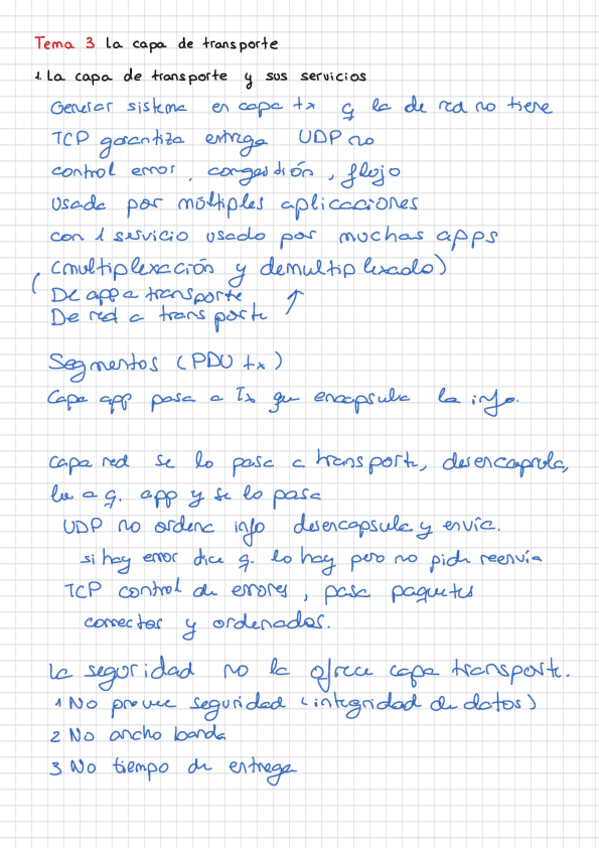 Tema 3 La capa de transporte
1. La capa de transporte y sus servicios
Generar sistema en capa tx q la de red no tiene
TCP garantiza entrega UDP no
control error, congestión, flujo
Usada por múltiples aplicaciones
con 1 servicio usado por muchas apps
(multiplexación y demultiplexado)
( De app a transporte
De red a transporte ↑
Segmentos (PDU tx)
Capa app pasa a Tx que encapsula la info.
capa red se lo pasa a transporte, desencapsula,
lee a q. app y se lo pasa
UDP no ordena info desencapsula y envía.
si hay error dice q. lo hay pero no pide reenvía
TCP control de errores, pasa paquetes
correctos y ordenados.
La seguridad no la ofrece capa transporte.
1 No provee seguridad (integridad de datos)
2 No ancho banda
3 No tiempo de entrega